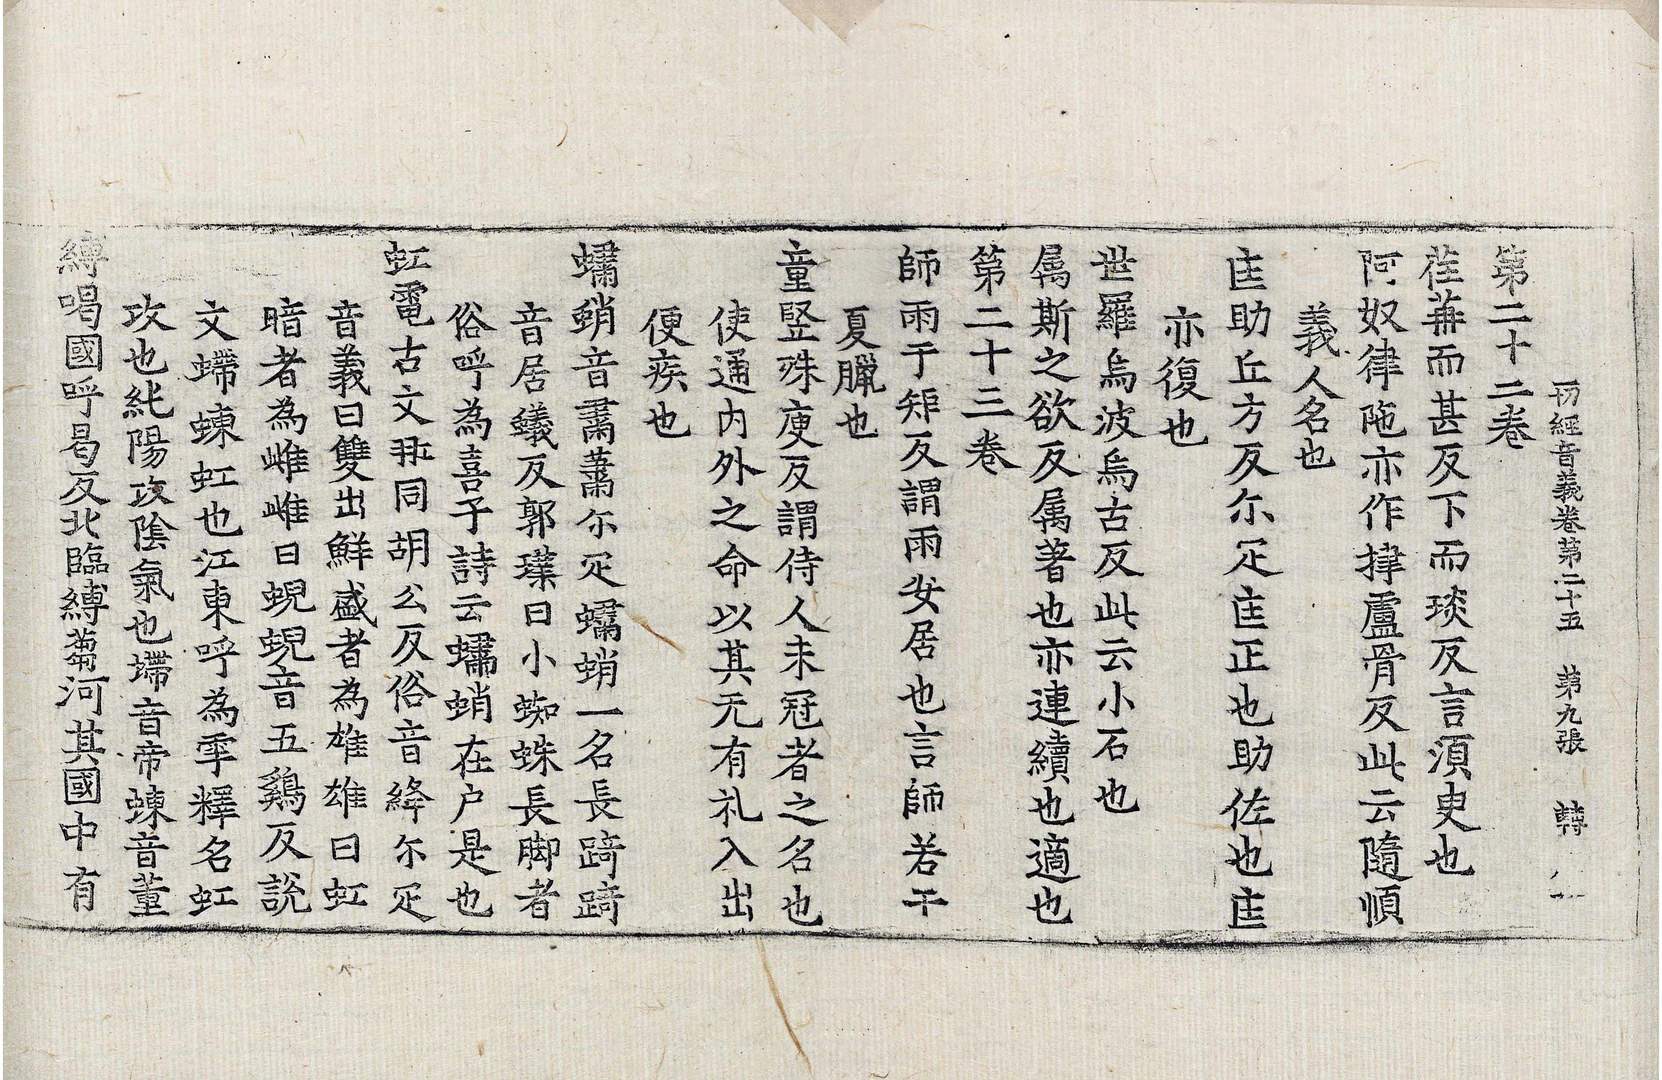 切經音義卷第二十五 第九張 轉
第二十二卷
荏苒而甚反下而琰反言須臾也
阿奴律陁亦作㨖盧骨反此云隨順
義人名也
匡助丘方反尓疋匡正也助佐也匡
亦復也
世羅烏波烏古反此云小石也
属斯之欲反属著也亦連續也適也
第二十三卷
師雨于矩反謂雨安居也言師若干
夏臘也
童竪殊庾反謂侍人未冠者之名也
使通内外之命以其无有礼入出
便疾也
蠨蛸音肅蕭尓疋蠨蛸一名長踦踦
音居蟻反郭璞曰小蜘蛛長脚者
俗呼為喜子詩云蠨蛸在户是也
虹霓古文𧈫同胡公反俗音絳尓疋
音義曰雙出鮮盛者為雄雄曰虹
暗者為雌雌曰蜺蜺音五鷄反說
文螮蝀虹也江東呼為雩釋名虹
攻也純陽攻陰氣也螮音帝蝀音董
縛喝國呼曷反北臨縛蒭河其國中有